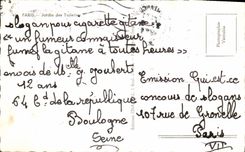 PARIS. - Jardin des Tuileries
slogan pour cigarette gitane
" un fumeur connaisseur
fume la gitane à toutes heures "
envoi de Mlle g. goubert
12 ans
54 bd de la république
Boulogne
Seine
Emission Qui est ce
concours de slogans
107 rue de Grenelle
Paris
VII